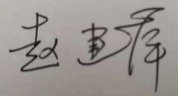 赵建萍